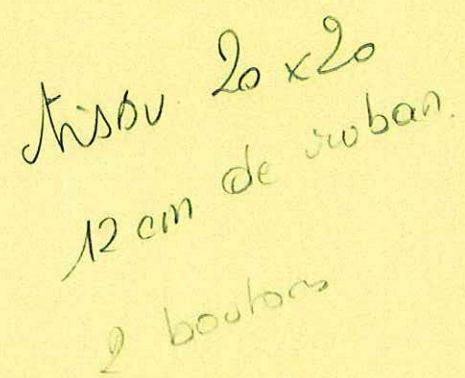 tissu 20 x 20
12 cm de ruban.
2 boutons